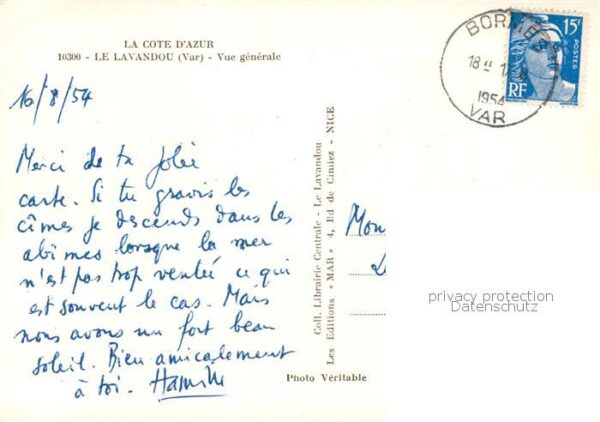 LA COTE D'AZUR
10300 - LE LAVANDOU (Var) - Vue générale
16/8/54
Merci de ta jolie
carte. Si tu gravis les
cîmes je descends dans les
abîmes lorsque la mer
n'est pas trop ventée ce qui
est souvent le cas. Mais
nous avons un fort beau
soleil. Bien amicalement
à toi.
Photo Véritable
Coll. Librairie Centrale - Le Lavandou
Les Editions « MAR » 4, Bd de Cimiez - NICE
BORMES
18 H
1954
VAR
15F
POSTES
RF
Mon
privacy protection
Datenschutz